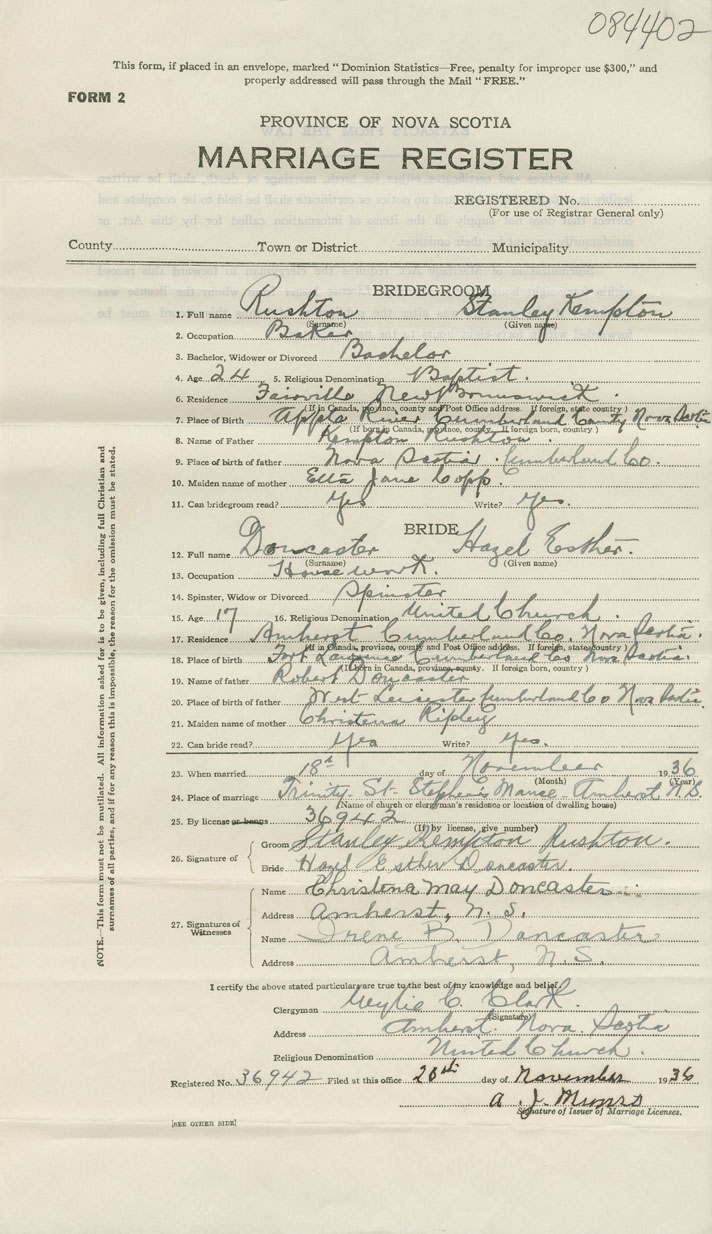 084402
This form, if placed in an envelope, marked "Dominion Statistics—Free, penalty for improper use $300," and
properly addressed will pass through the Mail "FREE."
FORM 2
PROVINCE OF NOVA SCOTIA
MARRIAGE REGISTER
REGISTERED No.
(For use of Registrar General only)
County Town or District Municipality
BRIDEGROOM
1. Full name Rushton Stanley Kempton
(Surname) (Given name)
2. Occupation Baker
3. Bachelor, Widower or Divorced Bachelor
4. Age 24 5. Religious Denomination Baptist.
6. Residence Fairville New Brunswick.
(If in Canada, province, county and Post Office address. If foreign, state country)
7. Place of Birth Appla River Cumberland County Nova Scotia
(If born in Canada, province, county. If foreign born, country)
8. Name of Father Kempton Rushton.
9. Place of birth of father Nova Scotia. Cumberland Co.
10. Maiden name of mother Etta Jane Copp.
11. Can bridegroom read? Yes Write? Yes.
BRIDE
12. Full name Doncaster Hazel Esther.
(Surname) (Given name)
13. Occupation Housework.
14. Spinster, Widow or Divorced Spinster
15. Age 17 16. Religious Denomination United Church.
17. Residence Amherst Cumberland Co. Nova Scotia.
(If in Canada, province, county and Post Office address. If foreign, state country)
18. Place of birth Fort Lawrence Cumberland Co Nova Scotia.
(If born in Canada, province, county. If foreign born, country)
19. Name of father Robert Doncaster
20. Place of birth of father West Leicester Cumberland Co Nova Scotia.
21. Maiden name of mother Christena Ripley
22. Can bride read? Yes Write? Yes.
23. When married 18th day of November 1936
(Month) (Year)
24. Place of marriage Trinity-St-Stephen's Manse-Amherst N.S.
(Name of church or clergyman's residence or location of dwelling house)
25. By license or banns 36942
(If by license, give number)
26. Signature of Groom Stanley Kempton Rushton.
Bride Hazel Esther Doncaster.
27. Signatures of Witnesses
Name Christena May Doncaster
Address Amherst, N. S.
Name Irene B. Doncaster
Address Amherst, N.S.
I certify the above stated particulars are true to the best of my knowledge and belief.
Clergyman C. Clark.
(Signature)
Address Amherst. Nova Scotia
Religious Denomination United Church.
Registered No. 36942 Filed at this office 20th day of November 1936
A. J. Munro
Signature of Issuer of Marriage Licenses.
[SEE OTHER SIDE]
NOTE.—This form must not be mutilated. All information asked for is to be given, including full Christian and
surnames of all parties, and if for any reason this is impossible, the reason for the omission must be stated.